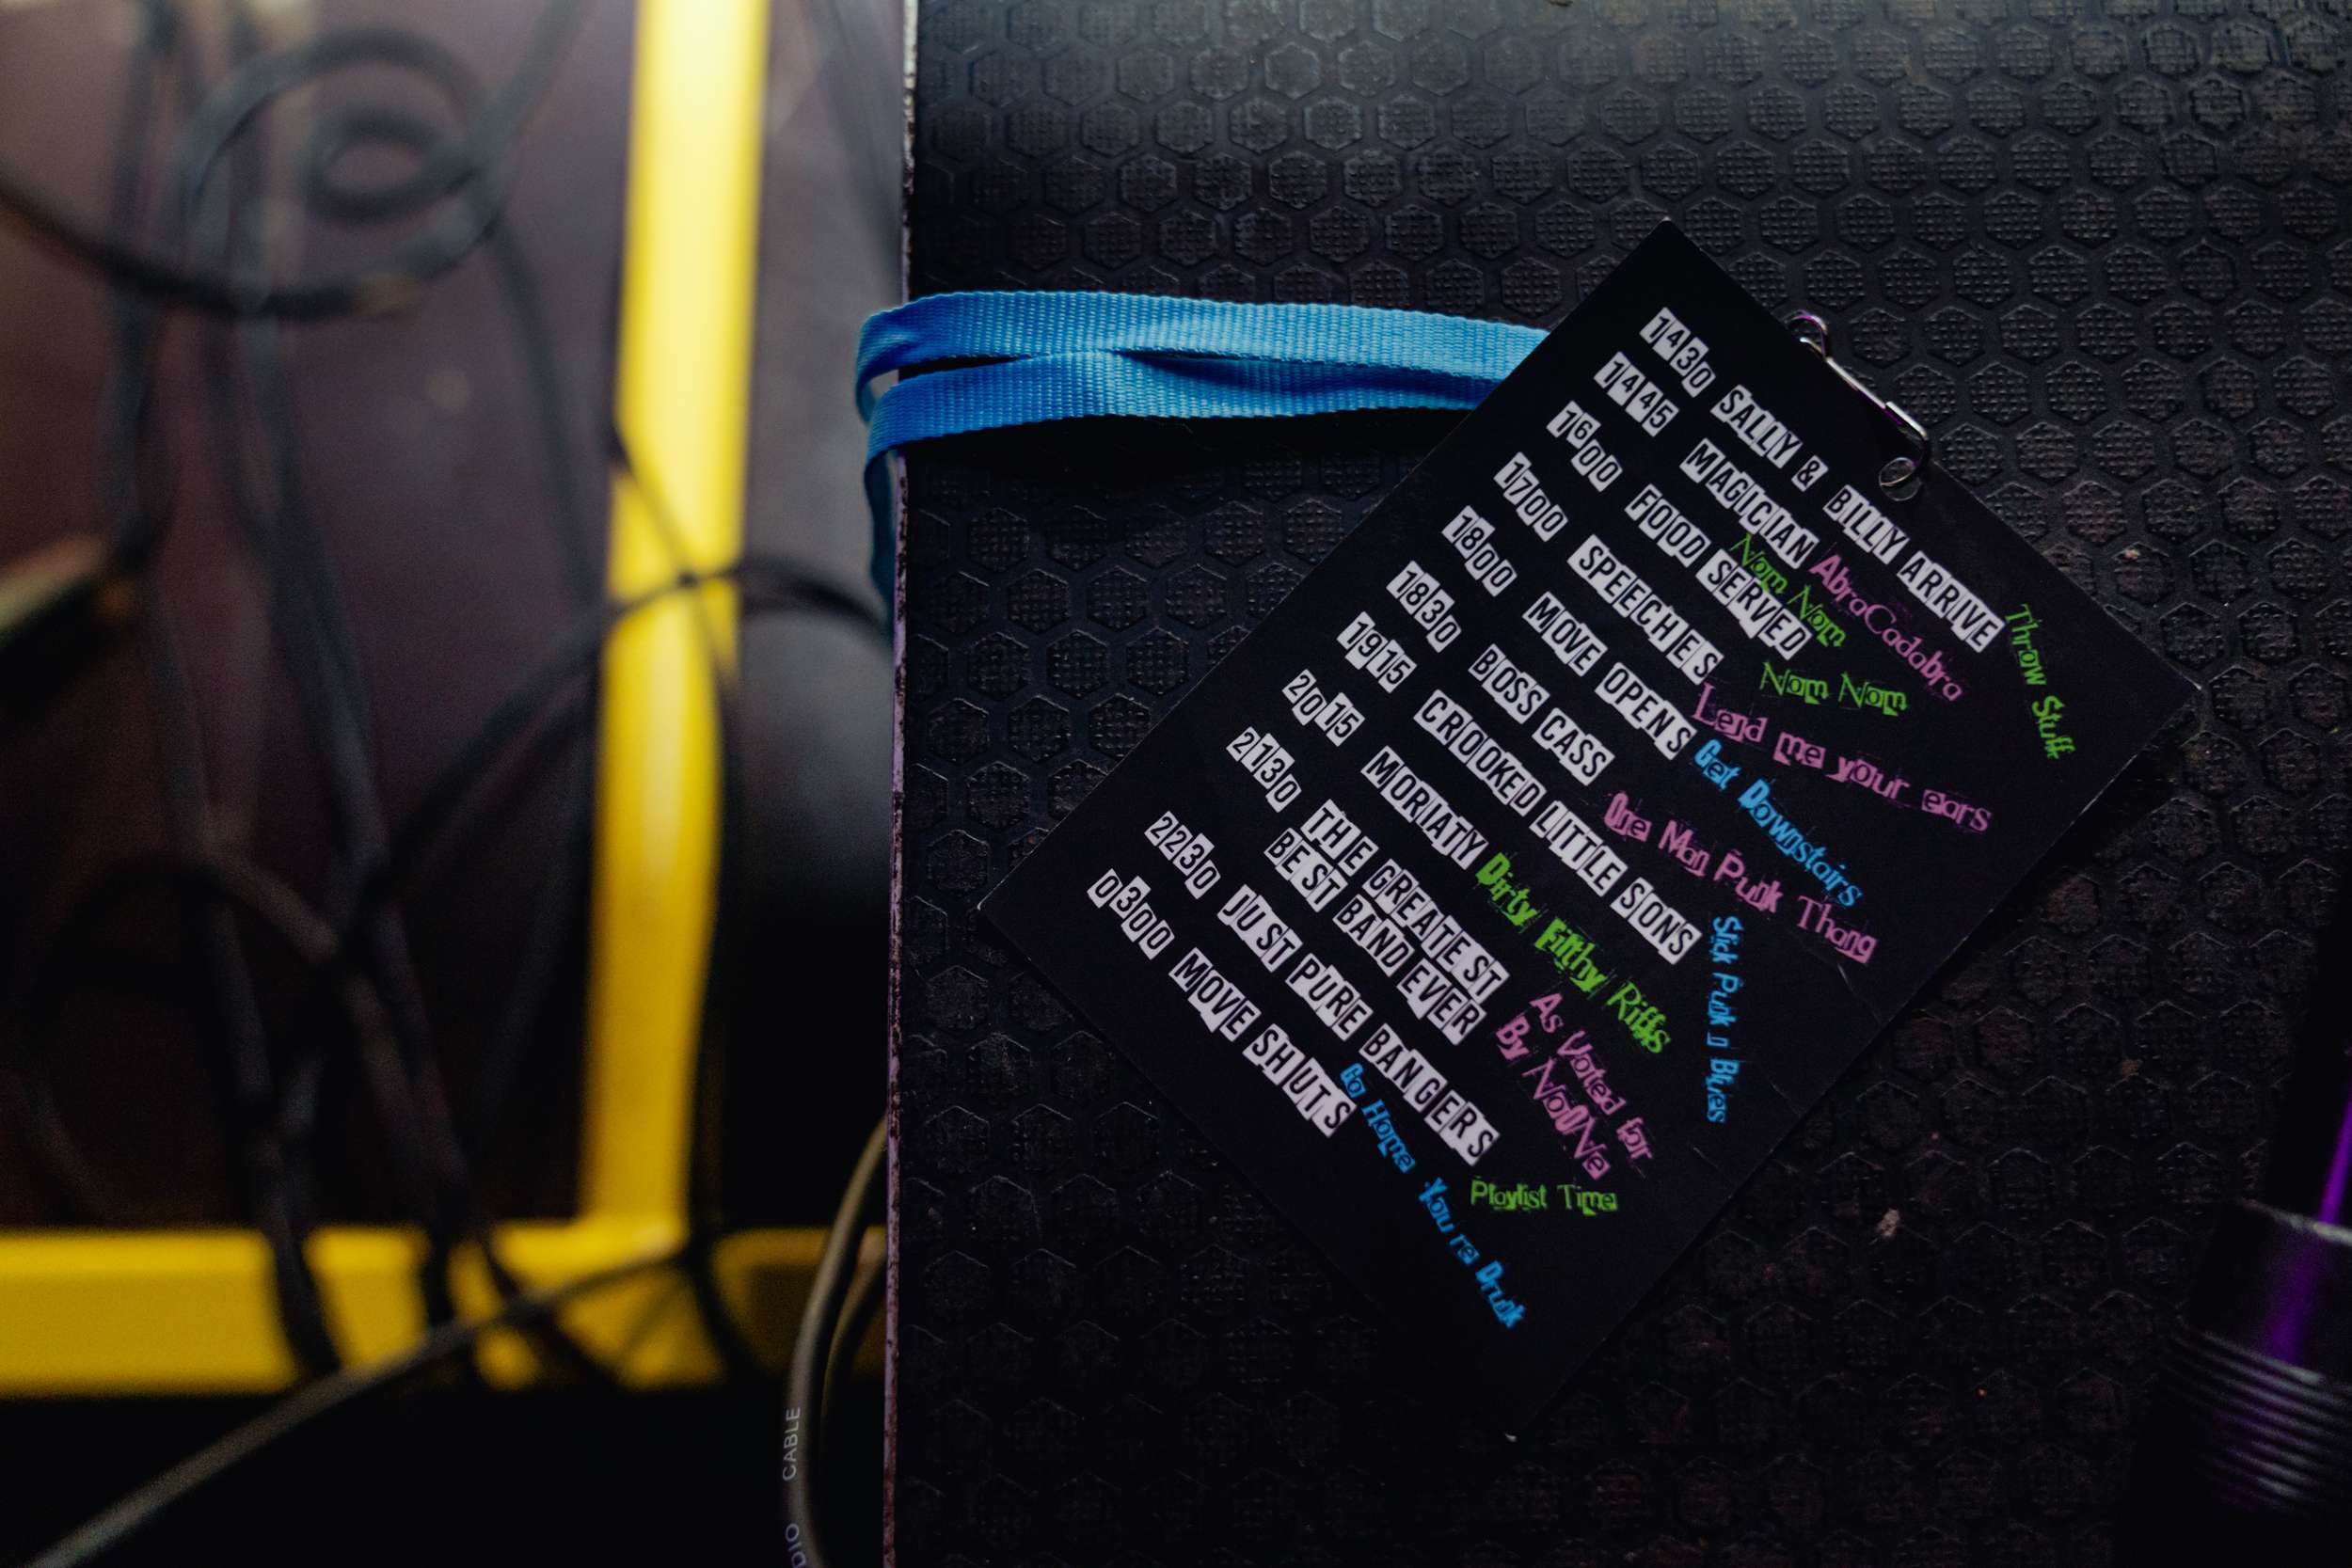 1430 SALLY & BILLY ARRIVE Throw Stuff
1445 MAGICIAN AbraCadabra
1600 FOOD SERVED Nom Nom Nom Nom
1700 SPEECHES Lend me your ears
1800 MOVE OPENS Get Downstairs
1830 BOSS CASS One Man Punk Thang
1915 CROOKED LITTLE SONS Slick Punk n Blues
2015 MORIATY Dirty Filthy Riffs
2130 THE GREATEST
BEST BAND EVER As Voted for
By NoONe
2230 JUST PURE BANGERS Playlist Time
0300 MOVE SHUTS Go Home You're Drunk
DIO CABLE